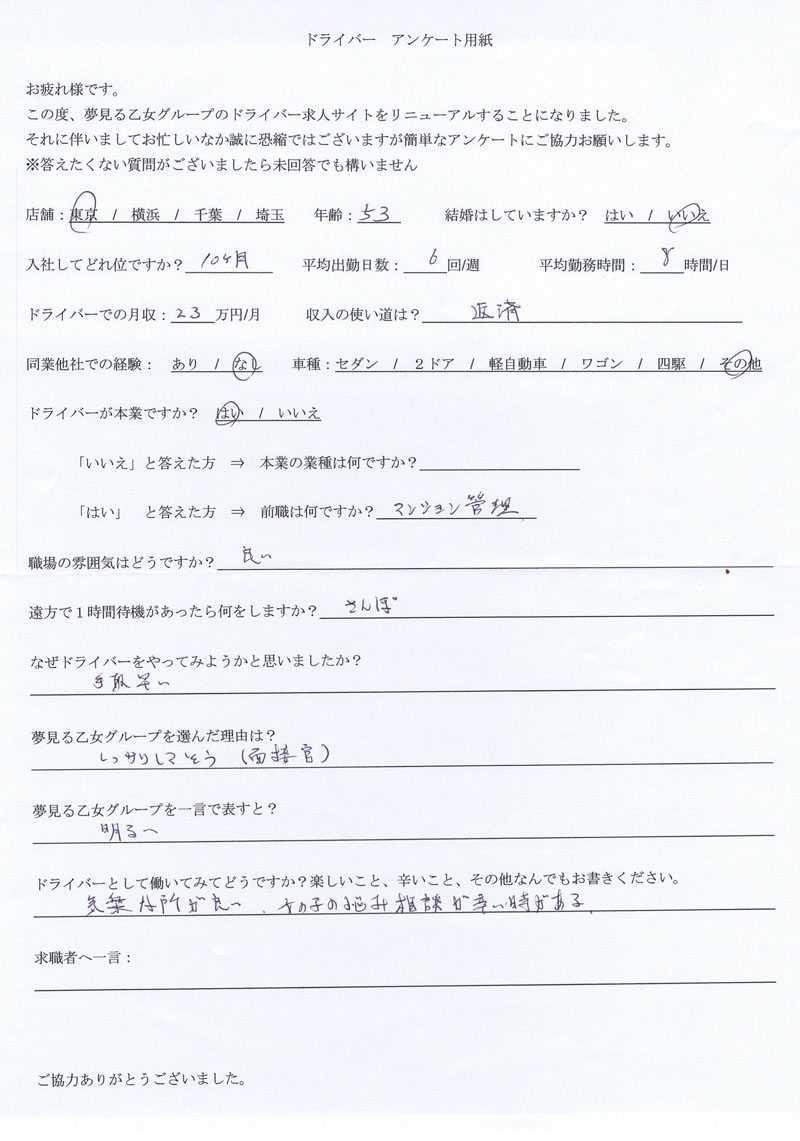 ドライバー　アンケート用紙
お疲れ様です。
この度、夢見る乙女グループのドライバー求人サイトをリニューアルすることになりました。
それに伴いましてお忙しいなか誠に恐縮ではございますが簡単なアンケートにご協力お願いします。
※答えたくない質問がございましたら未回答でも構いません
店舗：東京　/　横浜　/　千葉　/　埼玉　　年齢：53　　結婚はしていますか？　はい　/　いいえ
入社してどれ位ですか？ 10ヶ月　　平均出勤日数： 6 回/週　　平均勤務時間： 8 時間/日
ドライバーでの月収：23 万円/月　　収入の使い道は？ 返済
同業他社での経験：　あり　/　なし　　車種：セダン　/　２ドア　/　軽自動車　/　ワゴン　/　四駆　/　その他
ドライバーが本業ですか？　はい　/　いいえ
「いいえ」と答えた方　⇒　本業の業種は何ですか？
「はい」　と答えた方　⇒　前職は何ですか？ マンション管理
職場の雰囲気はどうですか？ 良い
遠方で１時間待機があったら何をしますか？ さんぽ
なぜドライバーをやってみようかと思いましたか？
手取早い
夢見る乙女グループを選んだ理由は？
しっかりしていそう（面接官）
夢見る乙女グループを一言で表すと？
明るい
ドライバーとして働いてみてどうですか？楽しいこと、辛いこと、その他なんでもお書きください。
気楽な所が良い、女の子の悩み相談が辛い時がある。
求職者へ一言：
ご協力ありがとうございました。